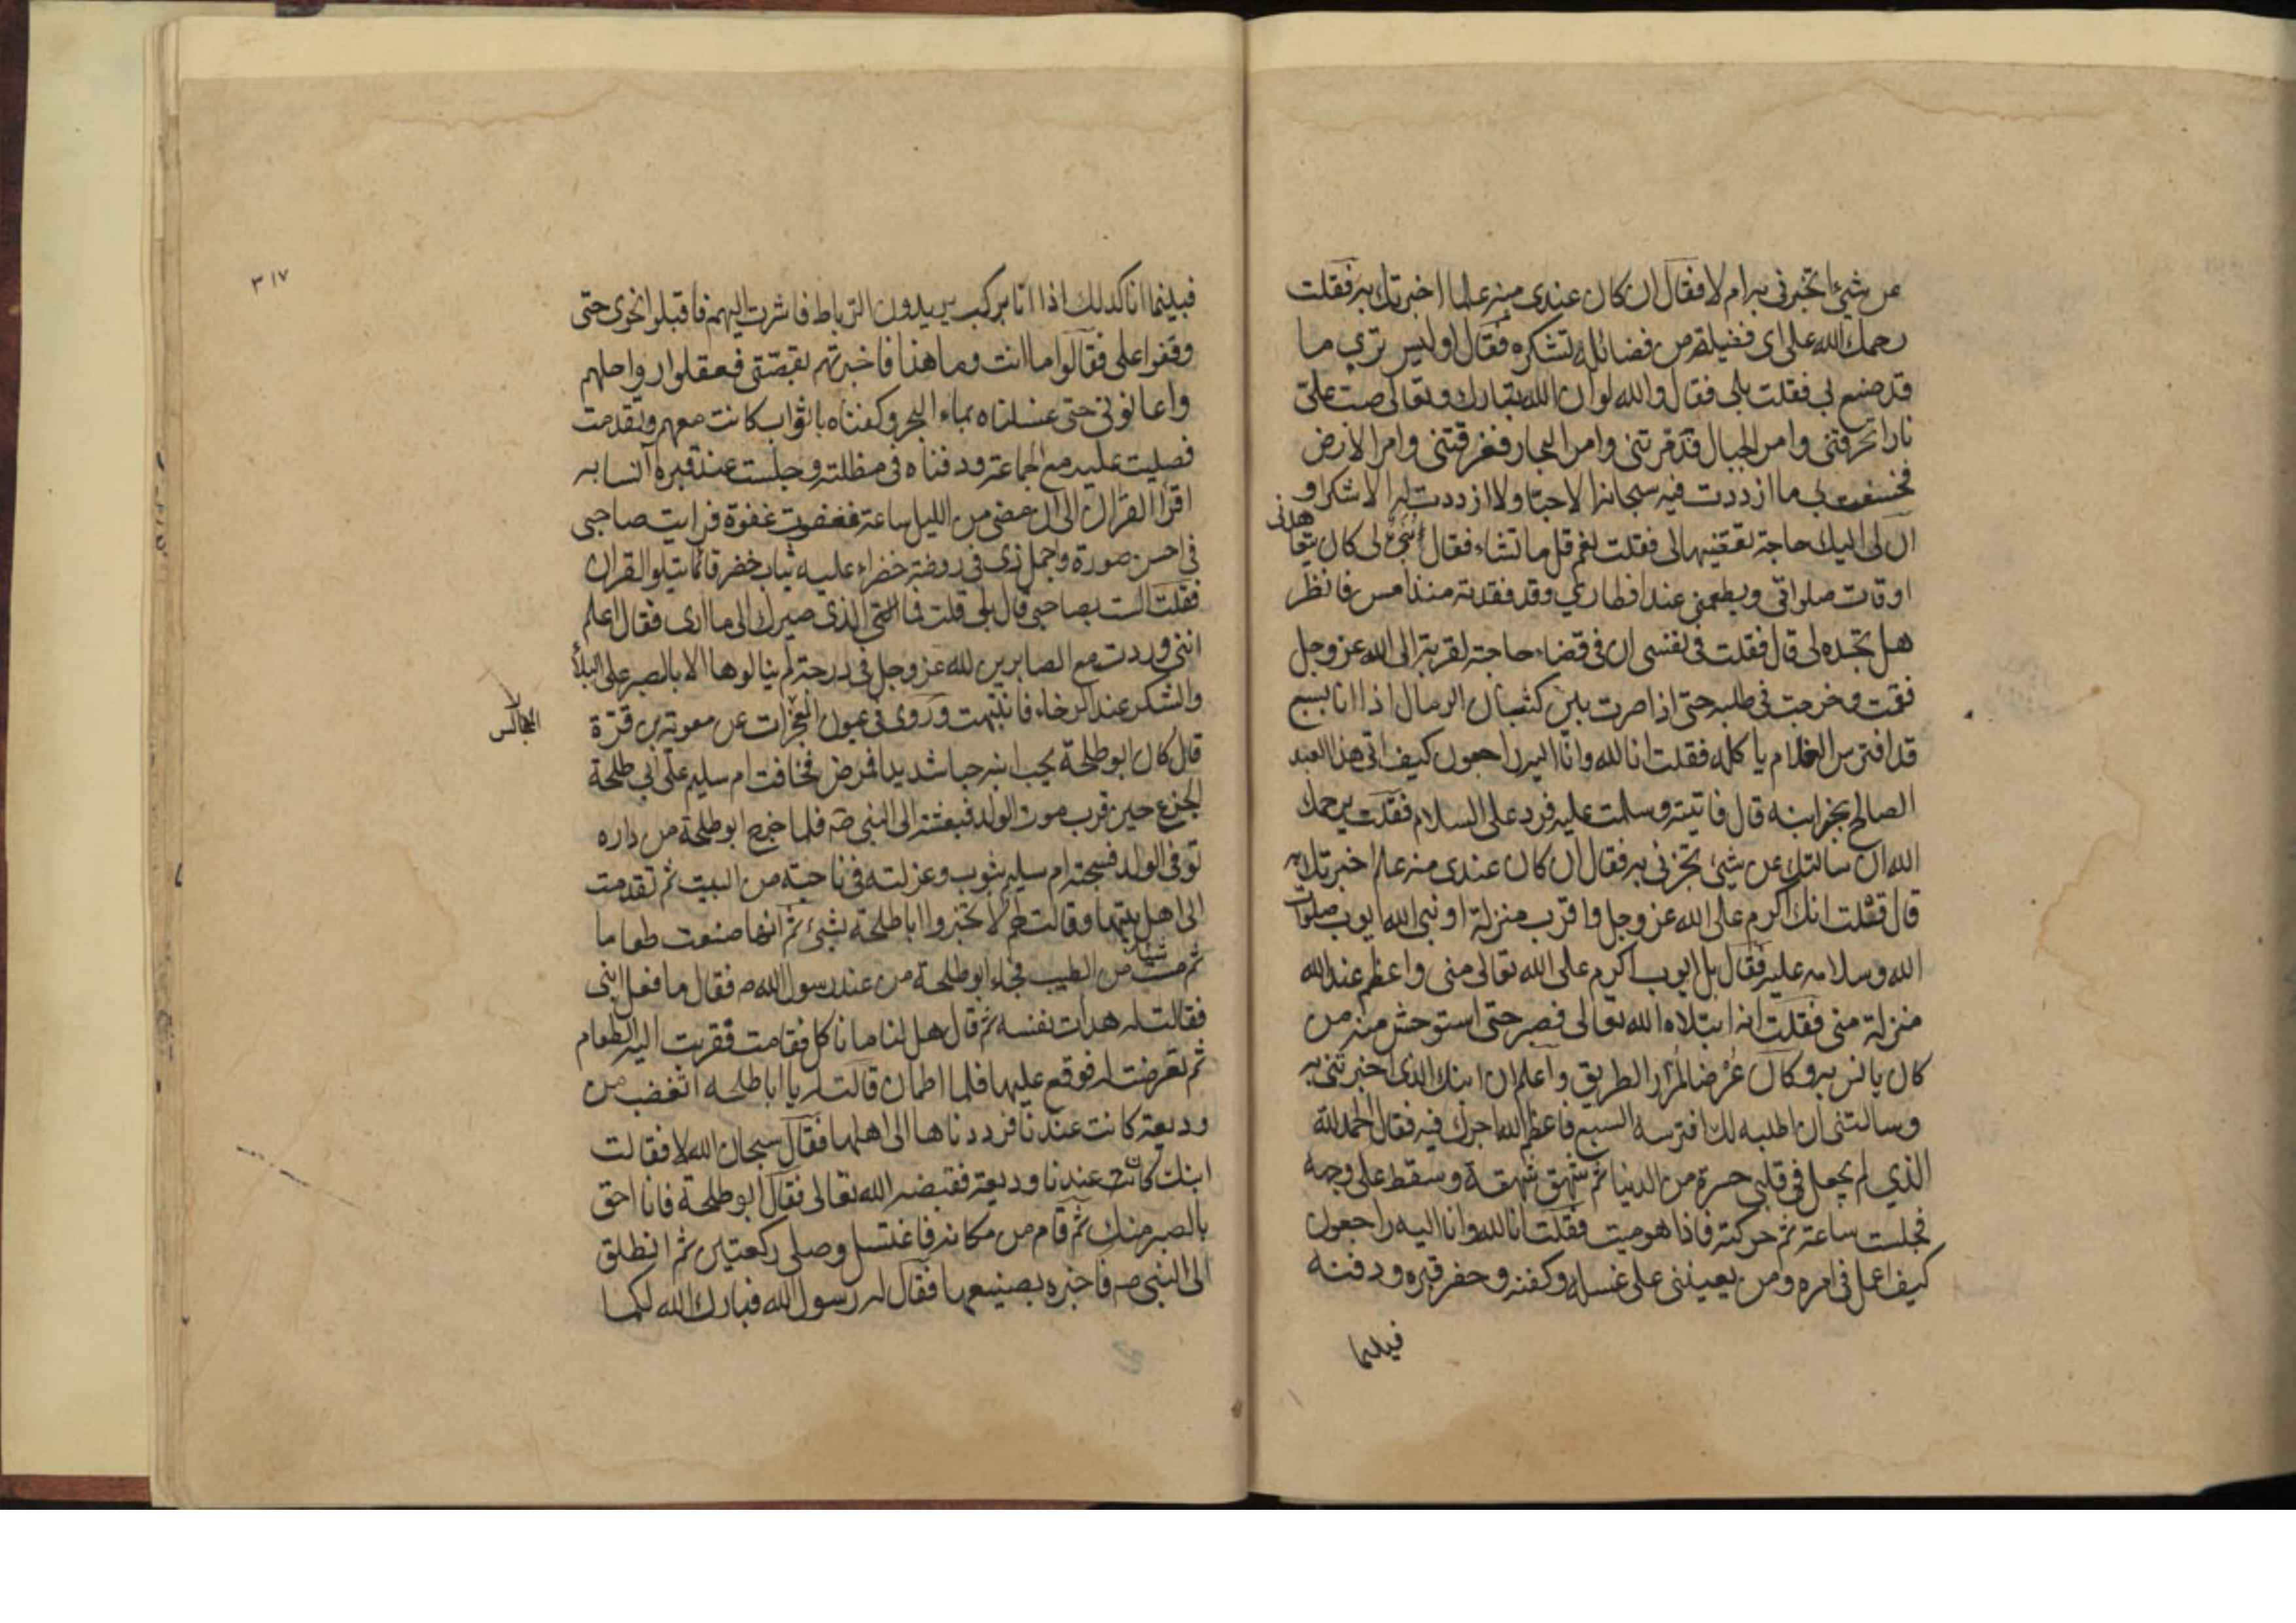 عن شيئ اتخبرنى به ام لا فقال ان كان عندى منه علما اخبرتك به فقلت
رحمك الله على اى فضيلة من فضائله تشكره فقال اوليس ترى ما
قد صنع بى فقلت بلى فقال والله لو ان الله تبارك وتعالى صب على
نارا تحرقنى وامر الجبال فدمرتنى وامر البحار فغرقتنى وامر الارض
فخسفت بى ما ازددت فيه سبحانه الا حبا ولا ازددت له الا شكرا و
ان لى اليك حاجة تقضيها لى فقلت نعم قل ما تشاء فقال بنى لى كان يتعاهدنى
اوقات صلواتى ويطعمنى عند افطارى وقد فقدته منذ امس فانظر
هل تجده لى قال فقلت فى نفسى ان فى قضاء حاجته لقربة الى الله عز وجل
فقمت وخرجت فى طلبه حتى اذا صرت بين كثبان الرمال اذا انا بسبع
قد افترس الغلام ياكله فقلت انا لله وانا اليه راجعون كيف اتى هذا العبد
الصالح بخبر ابنه قال فاتيته وسلمت عليه فرد على السلام فقلت يرحمك
الله ان سالتك عن شيئ تخبرنى به فقال ان كان عندى منه علم اخبرتك به
قال فقلت انك اكرم على الله عز وجل واقرب منزلة او نبى الله ايوب صلوات
الله وسلامه عليه فقال بل ايوب اكرم على الله تعالى منى واعظم عند الله
منزلة منى فقلت انه ابتلاه الله تعالى فصبر حتى استوحش منه من
كان يانس به وكان غرضا لمرار الطريق واعلم ان ابنك الذى اخبرتنى به
وسالتنى ان اطلبه لك افترسه السبع فاعظم الله اجرك فيه فقال الحمد لله
الذي لم يجعل فى قلبى حسرة من الدنيا ثم شهق شهقة وسقط على وجهه
فجلست ساعة ثم حركته فاذا هو ميت فقلت انا لله وانا اليه راجعون
كيف اعمل فى امره ومن يعيننى على غسله وكفنه وحفر قبره ودفنه
فبينما
٣١٧
فبينما انا كذلك اذا انا بركب يريدون الرباط فاشرت اليهم فاقبلوا نحوى حتى
وقفوا على فقالوا ما انت وما هذا فاخبرتهم بقصتى فعقلوا رواحلهم
واعانونى حتى غسلناه بماء البحر وكفناه باثواب كانت معهم وتقدمت
فصليت عليه مع الجماعة ودفناه فى مظلته وجلست عند قبره آنسا به
اقرا القران الى ان مضى من الليل ساعة فغفوت غفوة فرايت صاحبى
فى احسن صورة واجمل زى فى روضة خضراء عليه ثياب خضر قائما يتلو القران
فقلت الست بصاحبى قال بلى قلت فما الذى صيرك الى ما ارى فقال اعلم
اننى وردت مع الصابرين لله عز وجل فى درجة لم ينالوها الا بالصبر على البلاء
والشكر عند الرخاء فانتبهت وروى فى عيون المجالس عن معوية بن قرة
المجالس
قال كان ابو طلحة يحب ابنه حبا شديدا فمرض فخافت ام سليم على ابى طلحة
الجزع حين قرب موت الولد فبعثته الى النبى صه فلما خرج ابو طلحة من داره
توفى الولد فسجته ام سليم بثوب وعزلته فى ناحية من البيت ثم تقدمت
الى اهل بيتها وقالت لهم لا تخبروا ابا طلحة بشيئ ثم انها صنعت طعاما
ثم مست شيئا من الطيب فجاء ابو طلحة من عند رسول الله صه فقال ما فعل ابنى
فقالت له هدات نفسه ثم قال هل لنا ما ناكل فقامت فقربت اليه الطعام
ثم تعرضت له فوقع عليها فلما اطمان قالت له يا ابا طلحه اتغضب من
وديعة كانت عندنا فرددناها الى اهلها فقال سبحان الله لا فقالت
ابنك كان عندنا وديعة فقبضه الله تعالى فقال ابو طلحة فانا احق
بالصبر منك ثم قام من مكانه فاغتسل وصلى ركعتين ثم انطلق
الى النبى صه فاخبره بصنيعها فقال له رسول الله فبارك الله لكما